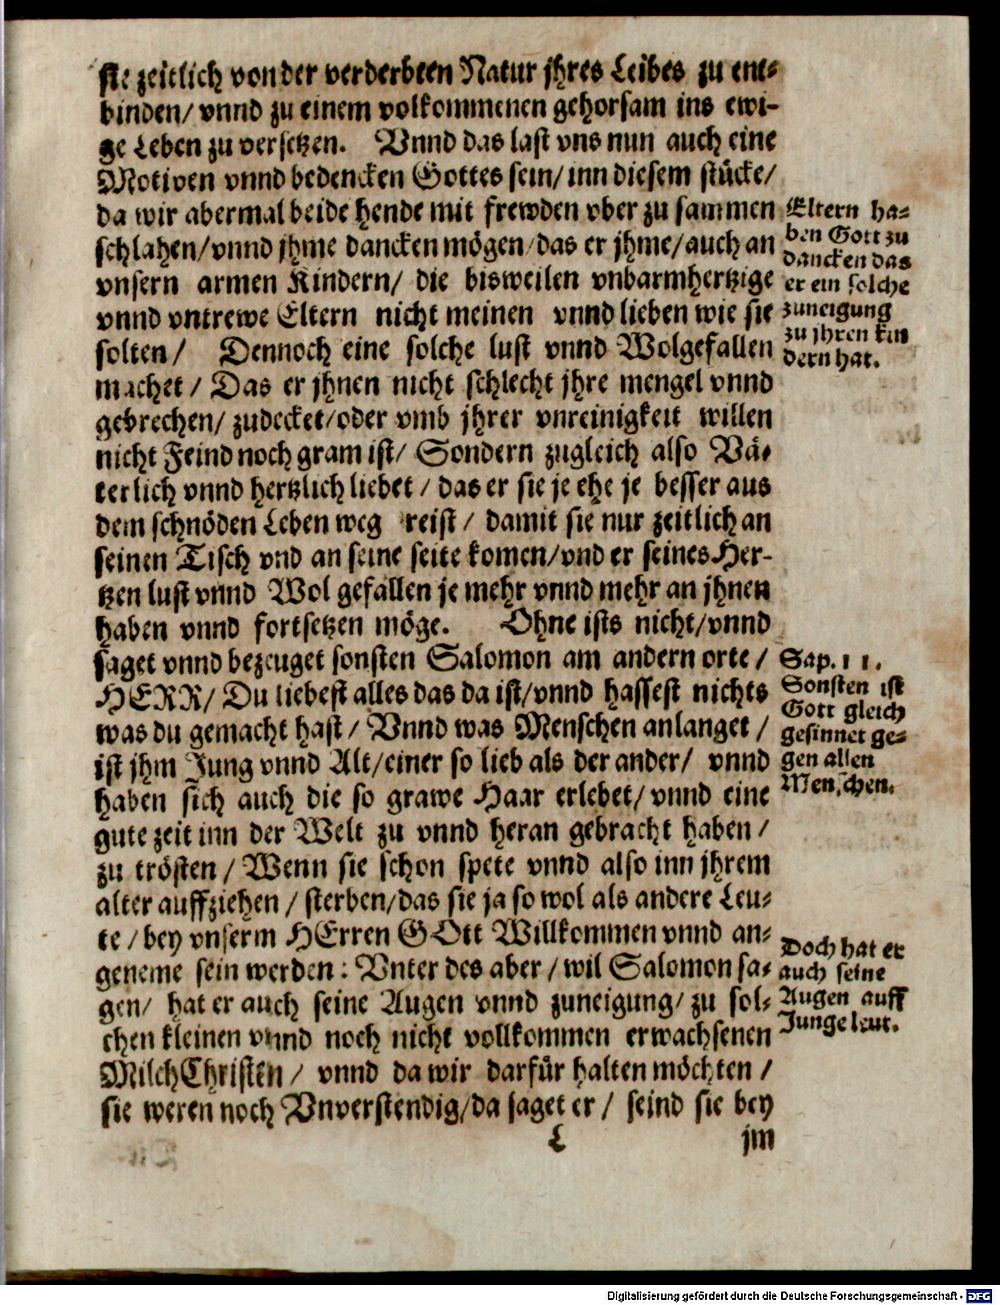 sie zeitlich von der verderbten Natur jhres Leibes zu ent-
binden/ vnnd zu einem volkommenen gehorsam ins ewi-
ge Leben zu versetzen. Vnnd das last vns nun auch eine
Motiven vnnd bedencken Gottes sein/ inn diesem stücke/
da wir abermal beide hende mit frewden vber zu sammen
schlahen/ vnnd jhme dancken mögen/ das er jhme/ auch an
vnsern armen Kindern/ die bisweilen vnbarmhertzige
vnnd vntrewe Eltern nicht meinen vnnd lieben wie sie
solten/ Dennoch eine solche lust vnnd Wolgefallen
machet/ Das er jhnen nicht schlecht jhre mengel vnnd
gebrechen/ zudecket/ oder vmb jhrer vnreinigkeit willen
nicht Feind noch gram ist/ Sondern zugleich also Vä-
terlich vnnd hertzlich liebet/ das er sie je ehe je besser aus
dem schnöden Leben weg reist/ damit sie nur zeitlich an
seinen Tisch vnd an seine seite komen/ vnd er seines Her-
tzen lust vnnd Wol gefallen je mehr vnnd mehr an jhnen
haben vnnd fortsetzen möge. Ohne ists nicht/ vnnd
saget vnnd bezeuget sonsten Salomon am andern orte/
HERR/ Du liebest alles das da ist/ vnnd hassest nichts
was du gemacht hast/ Vnnd was Menschen anlanget/
ist jhm Jung vnnd Alt/ einer so lieb als der ander/ vnnd
haben sich auch die so grawe Haar erlebet/ vnnd eine
gute zeit inn der Welt zu vnnd heran gebracht haben/
zu trösten/ Wenn sie schon spete vnnd also inn jhrem
alter auffziehen/ sterben/ das sie ja so wol als andere Leu-
te/ bey vnserm HErren GOtt Willkommen vnnd an-
geneme sein werden: Vnter des aber/ wil Salomon sa-
gen/ hat er auch seine Augen vnnd zuneigung/ zu sol-
chen kleinen vnnd noch nicht vollkommen erwachsenen
MilchChristen/ vnnd da wir darfür halten möchten/
sie weren noch Vnverstendig/ da saget er/ seind sie bey
L jm
Eltern ha-
ben Gott zu
dancken das
er ein solche
zuneigung
zu jhren kin
dern hat.
Sap. 11.
Sonsten ist
Gott gleich
gesinnet ge-
gen allen
Menschen.
Doch hat er
auch seine
Augen auff
Junge leut.
Digitalisierung gefördert durch die Deutsche Forschungsgemeinschaft - DFG